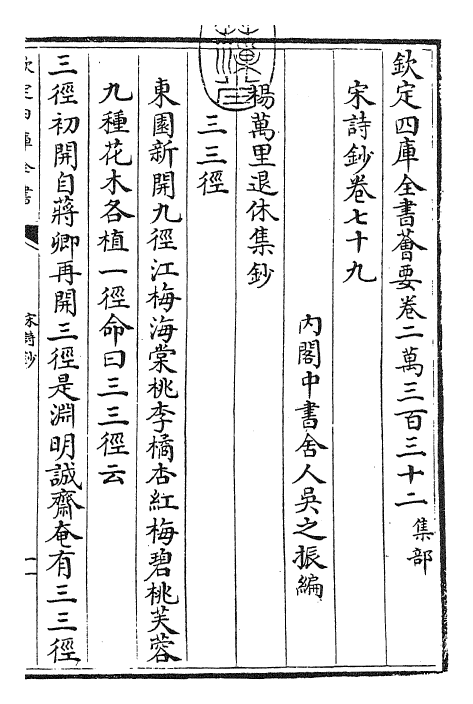 欽定四庫全書薈要卷二萬三百三十二 集部
宋詩鈔卷七十九
內閣中書舍人吳之振編
楊萬里退休集鈔
三三徑
東園新開九徑江梅海棠桃李橘杏紅梅碧桃芙蓉
九種花木各植一徑命曰三三徑云
三徑初開自蔣卿再開三徑是淵明誠齋奄有三三徑
欽定四庫全書
宋詩鈔
一